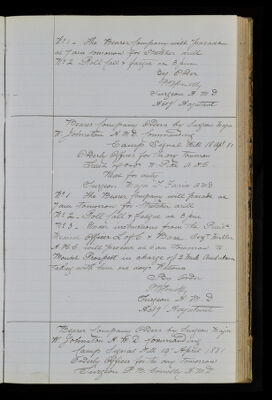 No 1. The Bearer Company will parade
at 7 am tomorrow for Stretcher drill
No 2. Roll Call & fatigue at 3 pm
By Order
Surgeon A M D
Actg Adjutant
Bearer Company Orders by Surgeon Major
W. Johnston A.M.D. Commanding
Camp Signal Hill 18 Apl 81
Orderly Officer for to-morrow
Next for duty
Surgeon Major J. Faris AMD
No 1. The Bearer Company will parade at
7 am tomorrow for Stretcher drill
No 2. Roll Call & fatigue at 3 pm
No 3. Under instructions from the
Medical Officer
A.H.C. will proceed at 6 am Tomorrow to
Mount Prospect in charge of 2
taking with him one days Rations
By Order
Surgeon A M D
Actg Adjutant
Bearer Company Orders by Surgeon Major
W. Johnston A.M.D. Commanding
Camp Signal Hill 19 April 1881
Orderly Officer for to-morrow
Surgeon